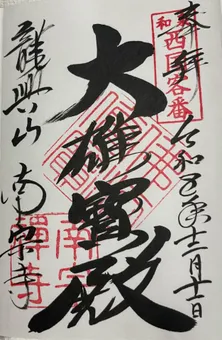 奉拝
西国客番
大雄寳殿
令和五年十二月十二日
龍興山
南宗寺
南宗
禅寺